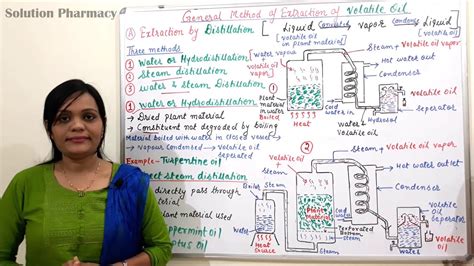 Solution Pharmacy
General Method of Extraction of Volatile Oil
(A) Extraction by Distillation
Liquid Converted vapor Condense Liquid
[volatile oil in plant material]
[volatile oil vapor]
[volatile oil]
Three methods
1) Water or Hydrodistillation
2) Steam distillation
3) Water & steam Distillation
1) Water or Hydrodistillation
→ Dried plant material
→ Constituent not degraded by boiling
Material boiled with water in closed vessel
→ Vapour Condensed → Volatile oil seperated
Example - Turpentine oil
steam distillation
directly pass through
plant material used
oil
oil
water vapour
Steam + Volatile oil vapor
Hot water out
Condenser
Volatile oil
seperator
Hydrosol
Cold water in
Plant material in water
Boiled
Heat
①
②
Volatile oil + steam
Steam + Volatile oil vapor
Hot water outlet
Condenser
Volatile oil
Seperator
Water
Cold water in
Plant Material
Perforated Bottom
Steam
Boiler
Steam
water
Heat Source